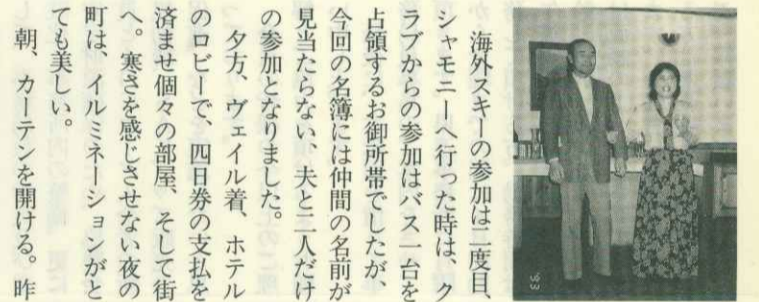 海外スキーの参加は二度目、
シャモニーへ行った時は、ク
ラブからの参加はバス一台を
占領するお御所帯でしたが、
今回の名簿には仲間の名前が
見当たらない、夫と二人だけ
の参加となりました。
夕方、ヴェイル着、ホテル
のロビーで、四日券の支払を
済ませ個々の部屋、そして街
へ。寒さを感じさせない夜の
町は、イルミネーションがと
ても美しい。
朝、カーテンを開ける。昨